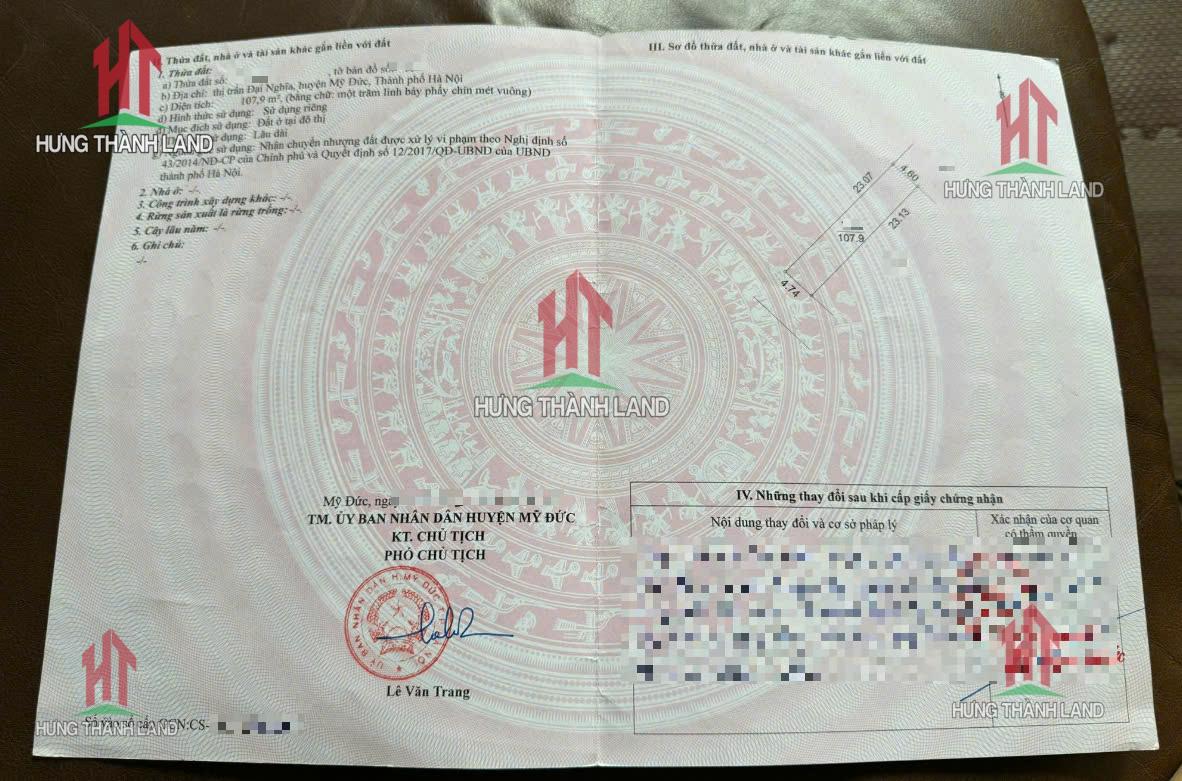 II. Thửa đất, nhà ở và tài sản khác gắn liền với đất
1. Thửa đất:
a) Thửa đất số: , tờ bản đồ số:
b) Địa chỉ: thị trấn Đại Nghĩa, huyện Mỹ Đức, Thành phố Hà Nội
c) Diện tích: 107,9 m², (bằng chữ: một trăm linh bảy phẩy chín mét vuông)
d) Hình thức sử dụng: Sử dụng riêng
đ) Mục đích sử dụng: Đất ở tại đô thị
sử dụng: Lâu dài
sử dụng: Nhận chuyển nhượng đất được xử lý vi phạm theo Nghị định số
43/2014/NĐ-CP của Chính phủ và Quyết định số 12/2017/QĐ-UBND của UBND
thành phố Hà Nội.
2. Nhà ở: -/-.
3. Công trình xây dựng khác: -/-.
4. Rừng sản xuất là rừng trồng: -/-.
5. Cây lâu năm: -/-.
6. Ghi chú:
-/-
Mỹ Đức,
TM. ỦY BAN NHÂN DÂN HUYỆN MỸ ĐỨC
KT. CHỦ TỊCH
PHÓ CHỦ TỊCH
ỦY BAN NHÂN DÂN H.MỸ ĐỨC
Lê Văn Trang
III. Sơ đồ thửa đất, nhà ở và tài sản khác gắn liền với đất
4.60
23.07
23.13
107.9
4.74
IV. Những thay đổi sau khi cấp giấy chứng nhận
Nội dung thay đổi và cơ sở pháp lý
Xác nhận của cơ quan
có thẩm quyền
HT
HƯNG THÀNH LAND
HT
HƯNG THÀNH LAND
HT
HƯNG THÀNH LAND
HT
HƯNG THÀNH LAND
HT
HƯNG THÀNH LAND